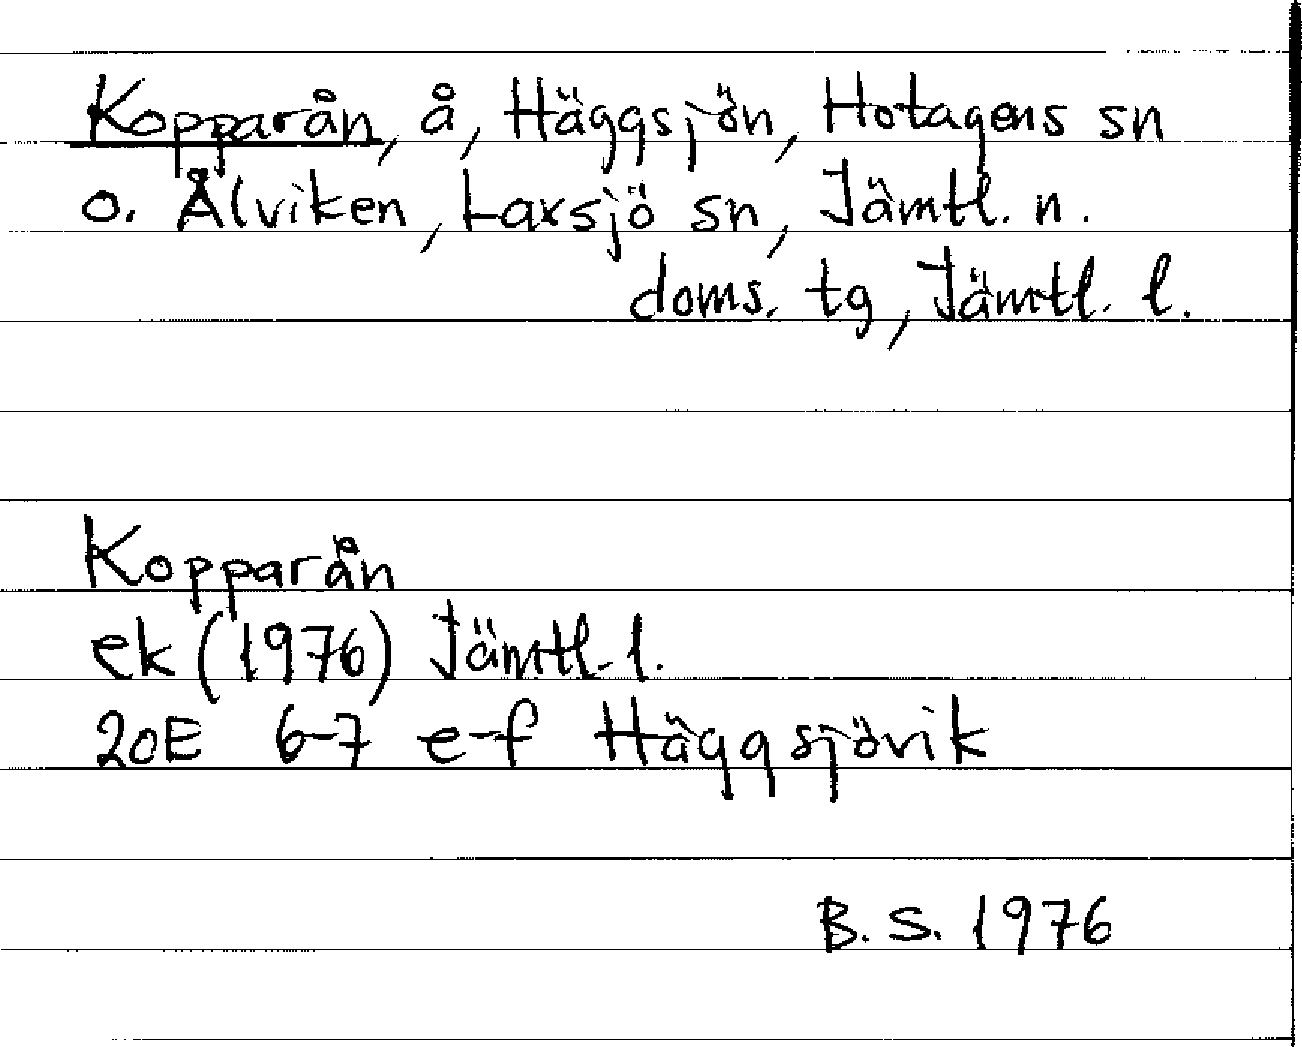 Kopparån, å, Häggsjön, Hotagens sn
o. Ålviken, Laxsjö sn, Jämtl. n.
doms. tg, Jämtl. l.
Kopparån
ek (1976) Jämtl. l.
20E 6-7 e-f Häggsjövik
B. S. 1976